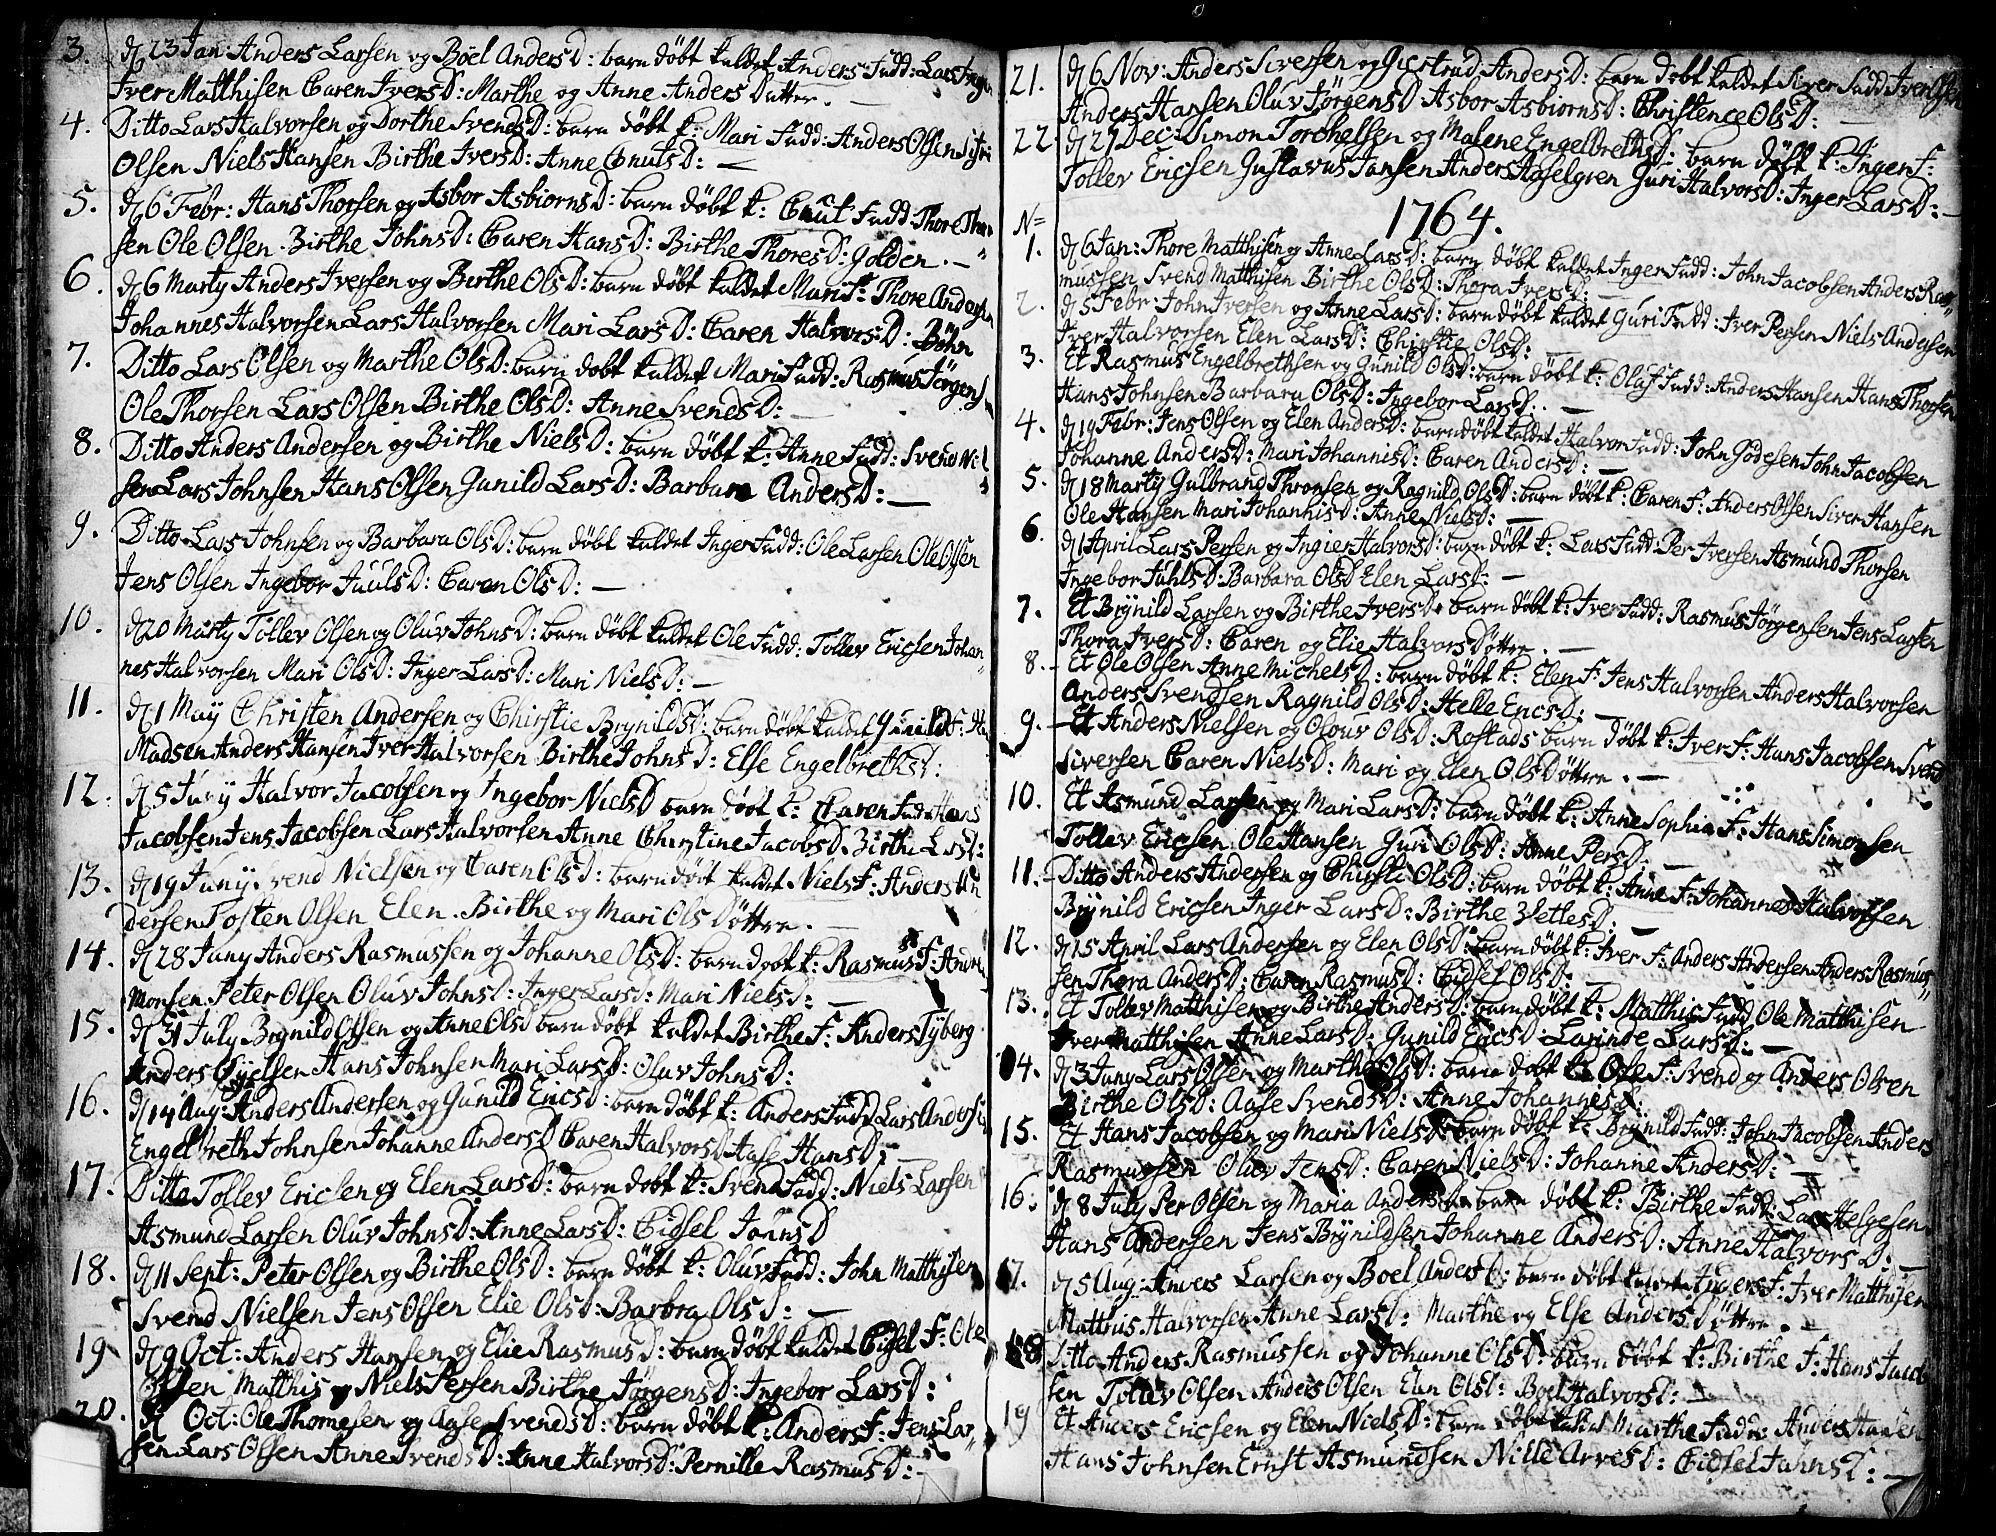 3. d 23 Jan: Anders Larsen og Böel Anders D: barn döbt kaldet Anders Fadd: Lars
Iver Matthisen Caren Ivers D: Marthe og Anne Anders Dattre. —
4. Ditto Lars Halvorsen og Dorthe Svends D: barn döbt k: Mari Fadd: Anders Olsen
Olsen Niels Hansen Birthe Ivers D: Anne Cnuts D: —
5. d 6 Febr: Hans Thorsen og Asbor Asbiorns D: barn döbt k: Cnut Fadd: Thore Thor
sen Ole Olsen. Birthe Johns D: Caren Hans D: Birthe Thores D: Golden. —
6. d 6 Marty Anders Iversen og Berthe Ols D: barn döbt kaldet Mari F: Thore Andersen
Johannes Halvorsen Lars Halvorsen Mari Lars D: Caren Halvors D: Böhn
7. Ditto Lars Olsen og Marthe Ols D: barn döbt kaldet Mari Fadd: Rasmus Jörgens
Ole Thorsen Lars Olsen Birthe Ols D: Anne Svends D: —
8. Ditto Anders Andersen og Birthe Niels D: barn döbt k: Anne Fadd: Svend Niel
sen Lars Johnsen Hans Olsen Gunild Lars D: Barbara Anders D: —
9. Ditto Lars Johnsen og Barbara Ols D: barn döbt kaldet Inger Fadd: Ole Larsen Ole Olsen
Jens Olsen Ingebor Juuls D: Caren Ols D: —
10. d 20 Marty Tollev Olsen og Oluv Johns D: barn döbt kaldet Ole Fadd: Tollev Ericsen Johan
nes Halvorsen Mari Ols D: Inger Lars D: Mari Niels D: —
11. d 1 May Christen Andersen og Chirstie Brynilds D: barn döbt kaldet Gunild F:
Madsen Anders Hansen Iver Halvorsen Birthe Johns D: Else Engelbreths D:
12. d 5 Juny Halvor Jacobsen og Ingebor Niels D barn döbt k: Caren Fadd: Hans
Jacobsen Jens Jacobsen Lars Halvorsen Anne Christine Jacobs D. Birthe Lars D:
13. d 19 Juny Svend Nielsen og Caren Ols D: barn döbt kaldet Niels F: Anders An
dersen Tosten Olsen Elen. Birthe og Mari Ols Döttre. —
14. d 28 Juny Anders Rasmussen og Johanne Ols D: barn döbt k: Rasmus F:
monsen Peter Olsen Oluv Johns D: Inger Lars D: Mari Niels D: —
15. d 31 July Brynild Olsen og Anne Ols D barn döbt kaldet Birthe F: Anders Tyberg
Anders Hans Johnsen Mari Lars D: Oluv Johns D:
16. d 14 Aug: Anders Andersen og Gunild Erics D: barn döbt k: Anders Fadd Lars Andersen
Engelbreth Johnsen Johanne Anders D Caren Halvors D Aase Hans D: —
17. Ditto Tollev Ericsen og Elen Lars D: barn döbt k: Svend Fadd: Niels Larsen
Asmund Larsen Oluv Johns D: Anne Lars D: Cidsel D
18. d 11 Sept: Peter Olsen og Birthe Ols D: barn döbt k: Oluv Fadd: John Matthisen
Svend Nielsen Jens Olsen Elie Ols D: Barbra Ols D: —
19 d 9 Oct: Anders Hansen og Elie Rasmus D: barn döbt kaldet Cidsel F: Ole
Olsen Matthis og Niels Persen Birthe Jörgens D: Ingebor Lars D:
20. d Oct: Ole Thomesen og Aase Svends D: barn döbt k: Anders F: Jens Lar
sen Lars Olsen Anne Svends D: Anne Halvors D: Pernille Rasmus D: —
21. d 6 Nov: Anders Siversen og Giestrud Anders D: barn döbt kaldet Siver Fadd Iver Olsen
Anders Hansen Oluv Jörgens D Asbor Asbiorns D: Christence Ols D: —
22. d 27 Dec: Simon Torchelsen og Malene Engelbreths D: barn döbt k: Inger F:
Tollev Ericsen Gustavus Jansen Anders Haselgren Guri Halvors D: Inger Lars D: —
N= 1764.
1. d 6 Jan: Thore Matthisen og Anne Lars D: barn döbt kaldet Inger Fadd: John Jacobsen Anders Ras
mussen Svend Matthisen Birthe Ols D: Thora Ivers D: —
2. d 5 Febr: John Iversen og Anne Lars D: barn döbt kaldet Guri Fadd: Iver Persen Niels Andersen
Iver Halvorsen Elen Lars D: Chirstie Ols D: —
3. Et Rasmus Engelbrethsen og Gunild Ols D: barn döbt k: Olaf Fadd: Anders Hansen Hans Thorsen
Hans Johnsen Barbara Ols D: Ingebor Lars D: —
4. d 19 Febr: Jens Olsen og Elen Anders D: barn döbt kaldet Halvor Fadd: John Godesen John Jacobsen
Johanne Anders D: Mari Johannis D: Caren Anders D: —
5. d 18 Marty Gulbrand Thronsen og Ragnild Ols D: barn döbt k: Caren F: Anders Olsen Siver Hansen
Ole Hansen Mari Johannis D: Anne Niels D: —
6. d 1 April Lars Persen og Ingier Halvors D: barn döbt k: Lars Fadd: Per Iversen Asmund Thorsen
Ingebor Juhls D: Barbara Ols D Elen Lars D: —
7. Et Brynild Larsen og Birthe Ivers D: barn döbt k: Iver Fadd: Rasmus Jörgensen Jens Larsen
Thora Ivers D: Caren og Elie Halvors Döttre. —
8. Et Ole Olsen Anne Michels D: barn döbt k: Elen F: Jens Halvorsen Anders Halvorsen
Anders Svendsen Ragnild Ols D: Helle Erics D: —
9. Et Anders Nielsen og Olouv Ols D: Rostads barn döbt k: Iver F: Hans Jacobsen Svend
Siversen Caren Niels D: Mari og Elen Ols Döttre. —
10. Et Asmund Larsen og Mari Lars D: barn döbt k: Anne Sophia F: Hans Simonsen
Tollev Ericsen Ole Hansen Guri Ols D: Anne Pers D: —
11. Ditto Anders Andersen og Chirstie Ols D: barn döbt k: Anne F: Johannes Halvorsen
Brynild Ericsen Inger Lars D: Birthe Zetles D: —
12. d 15 April Lars Andersen og Elen Ols D: barn döbt k: Iver F: Anders Andersen Anders Rasmus
sen Thora Anders D: Caren Rasmus D: Cidsel Ols D: —
13. Et Tollev Matthisen og Birthe Anders D: barn döbt k: Matthis Fadd Ole Matthisen
Iver Matthisen Anne Lars D: Gunild Erics D Larinde Lars D: —
14. d 3 Juny Lars Olsen og Marthe Ols D: barn döbt k: Ole F: Svend og Anders Olsen
Birthe Ols D: Aase Svends D: Anne Johannes D:
15. Et Hans Jacobsen og Mari Niels D: barn döbt k: Brynild Fadd: John Jacobsen Anders
Rasmussen Oluv Jens D: Caren Niels D: Johanne Anders D: —
16. d 8 July Per Olsen og Maria Anders D: barn döbt k: Birthe Fadd: Lars Helgesen
Hans Andersen Jens Brynildsen Johanne Anders D: Anne Halvors D: —
17. d 5 Aug: Anders Larsen og Boel Anders D: barn döbt kaldet Anders F: Iver Matthisen
Matthis Halvorsen Anne Lars D: Marthe og Else Anders Döttre. —
18 Ditto Anders Rasmussen og Johanne Ols D: barn döbt k: Birthe F: Hans Jacob
sen Tollev Olsen Anders Olsen Elen Ols D: Boel Halvors D: —
19 Et Anders Ericsen og Elen Niels D: barn döbt kaldet Marthe Fadd: Anders Hansen
Hans Johnsen Ernst Asmundsen Nille Arves D: Cidsel Jahns D: —